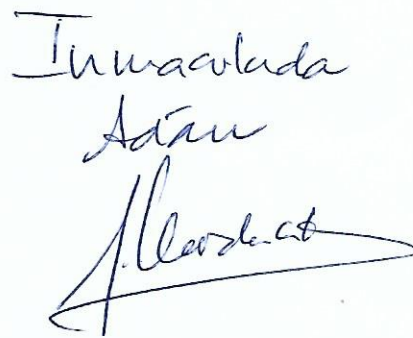 Inmaculada
Adán